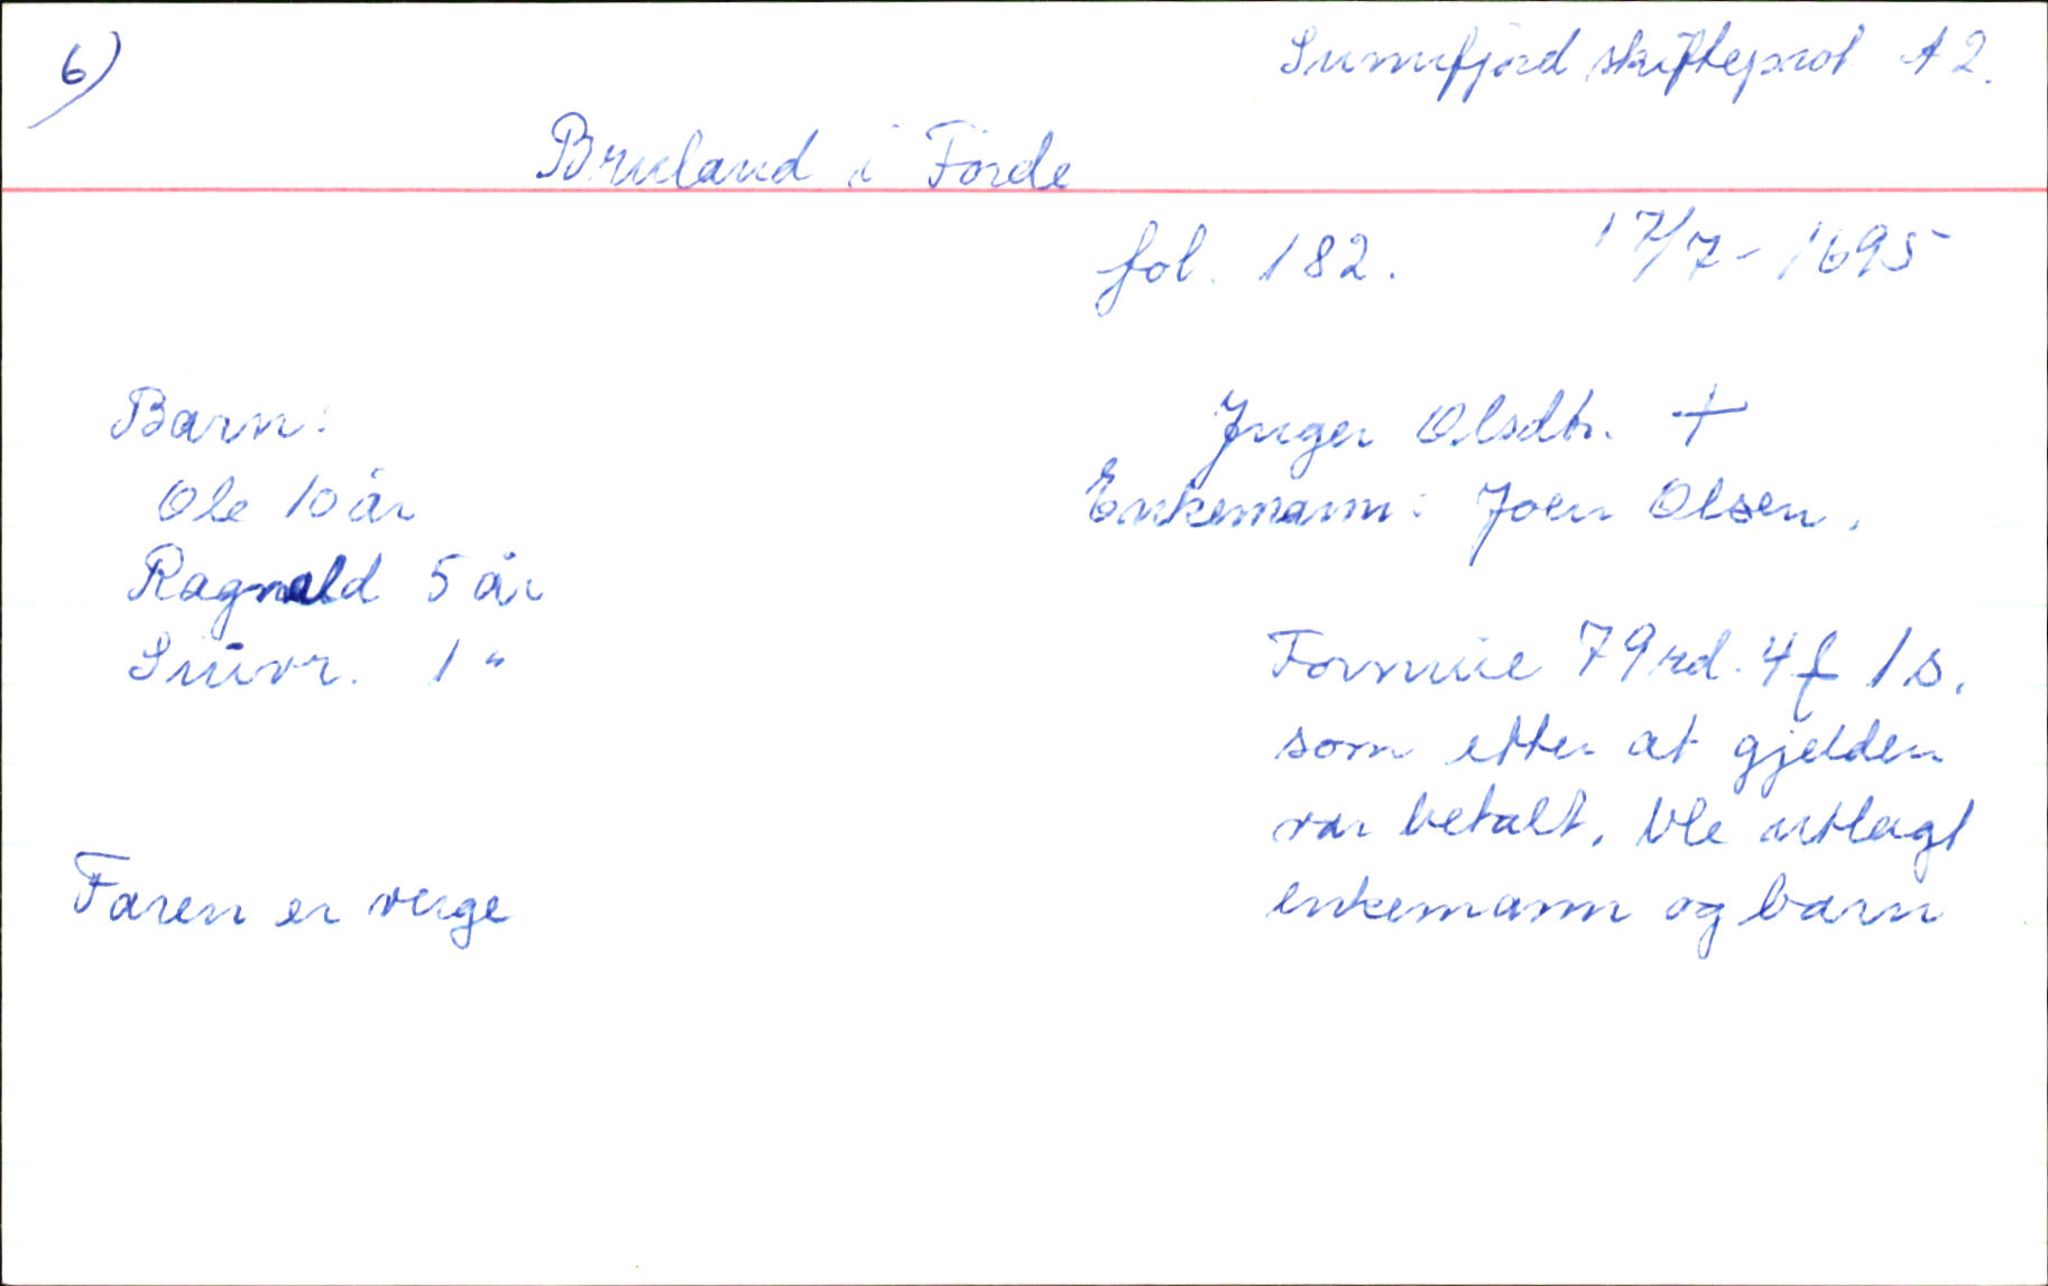 6)
Sunnfjord skifteprot A 2.
Bruland i Förde
fol. 182. 17/7 - 1695
Barn:
Ole 10 år
Ragnald 5 år
1 "
Faren er verge
Inger Olsdtr. +
Enkemann: Joen Olsen.
Formue 79 rd. 4 f 1 s.
som etter at gjelden
var betalt, ble utlagt
enkemann og barn